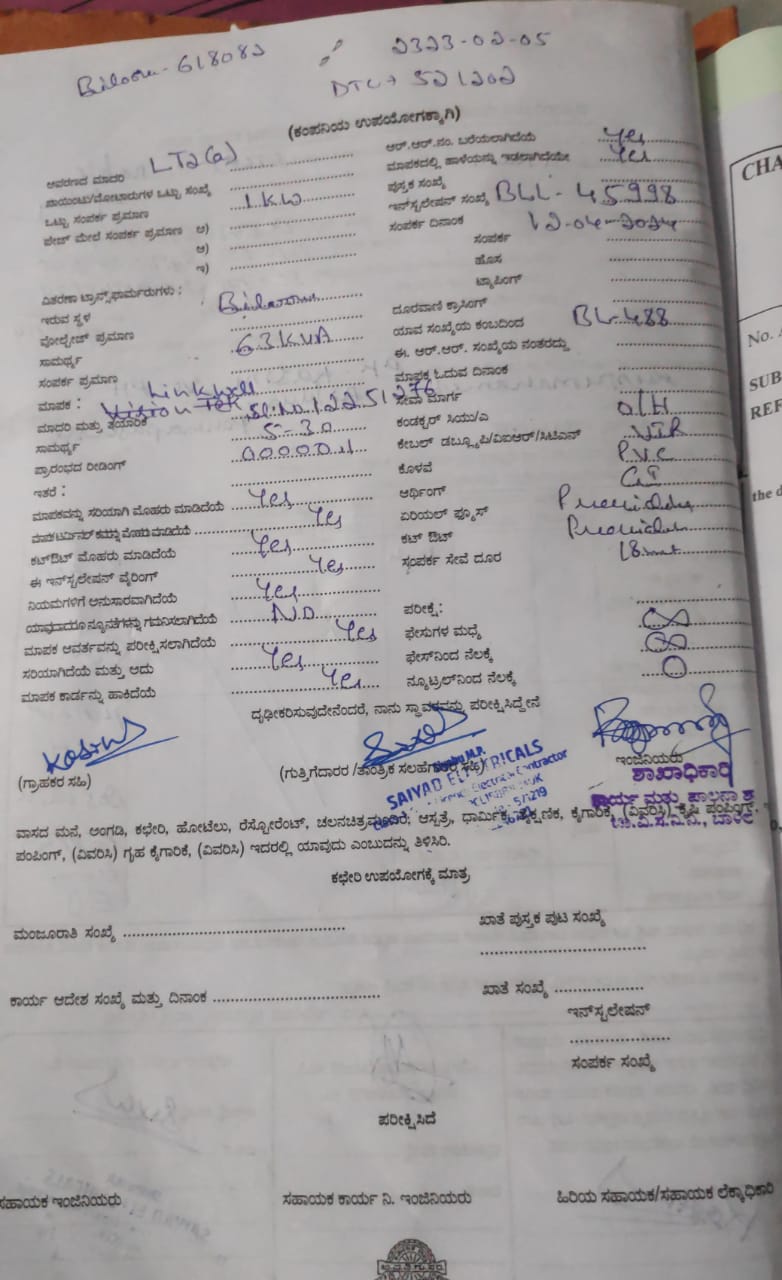 Biloor - 618082 2323-02-05
DTC → 521202
(ಕಂಪನಿಯ ಉಪಯೋಗಕ್ಕಾಗಿ)
ಆವರಣದ ಮಾದರಿ LT2(a)
ಪಾಯಿಂಟು/ಮೋಟಾರುಗಳ ಒಟ್ಟು ಸಂಖ್ಯೆ
ಒಟ್ಟು ಸಂಪರ್ಕ ಪ್ರಮಾಣ 1.KW
ಫೇಜ್ ಮೇಲೆ ಸಂಪರ್ಕ ಪ್ರಮಾಣ ಅ)
ಆ)
ಇ)
ವಿತರಣಾ ಟ್ರಾನ್ಸ್‌ಫಾರ್ಮರುಗಳು :
ಇರುವ ಸ್ಥಳ
ವೋಲ್ಟೇಜ್ ಪ್ರಮಾಣ
ಸಾಮರ್ಥ್ಯ 63KVA
ಸಂಪರ್ಕ ಪ್ರಮಾಣ
ಮಾಪಕ : Linkwell
ಮಾದರಿ ಮತ್ತು ತಯಾರಿಕೆ Sl:No 12251276
ಸಾಮರ್ಥ್ಯ 5-30
ಪ್ರಾರಂಭದ ರೀಡಿಂಗ್
ಇತರೆ :
ಮಾಪಕವನ್ನು ಸರಿಯಾಗಿ ಮೊಹರು ಮಾಡಿದೆಯೆ Yes
ಮೊಹರು ಮಾಡಿದೆಯೆ Yes
ಕಟ್‌ಔಟ್ ಮೊಹರು ಮಾಡಿದೆಯೆ Yes
ಈ ಇನ್‌ಸ್ಟಲೇಷನ್ ವೈರಿಂಗ್ Yes
ನಿಯಮಗಳಿಗೆ ಅನುಸಾರವಾಗಿದೆಯೆ Yes
ಯಾವುದಾದರೂ ನ್ಯೂನತೆಗಳನ್ನು ಗಮನಿಸಲಾಗಿದೆಯೆ No
ಮಾಪಕ ಆವರ್ತವನ್ನು ಪರೀಕ್ಷಿಸಲಾಗಿದೆಯೆ Yes
ಸರಿಯಾಗಿದೆಯೆ ಮತ್ತು ಅದು Yes
ಮಾಪಕ ಕಾರ್ಡನ್ನು ಹಾಕಿದೆಯೆ Yes
ಆರ್.ಆರ್.ನಂ. ಬರೆಯಲಾಗಿದೆಯೆ Yes
ಮಾಪಕದಲ್ಲಿ ಹಾಳೆಯನ್ನು ಇಡಲಾಗಿದೆಯೇ Yes
ಪುಸ್ತಕ ಸಂಖ್ಯೆ
ಇನ್‌ಸ್ಟಲೇಷನ್ ಸಂಖ್ಯೆ BLL-45998
ಸಂಪರ್ಕ ದಿನಾಂಕ 12-04-2024
ಸಂಪರ್ಕ
ಹೊಸ
ಟ್ಯಾಪಿಂಗ್
ದೂರವಾಣಿ ಕ್ರಾಸಿಂಗ್
ಯಾವ ಸಂಖ್ಯೆಯ ಕಂಬದಿಂದ BL-488
ಈ. ಆರ್.ಆರ್. ಸಂಖ್ಯೆಯ ನಂತರದ್ದು
ಮಾಪಕ ಓದುವ ದಿನಾಂಕ
ಸೇವಾ ಮಾರ್ಗ O/H
ಕಂಡಕ್ಟರ್ ಸಿಯು/ಎ
ಕೇಬಲ್ ಡಬ್ಲ್ಯೂಪಿ/ವಿಐಆರ್/ಸಿಟಿಎಸ್ VIR
ಕೊಳವೆ P.V.C
ಆರ್ಥಿಂಗ್ GI
ಏರಿಯಲ್ ಫ್ಯೂಸ್
ಕಟ್ ಔಟ್
ಸಂಪರ್ಕ ಸೇವೆ ದೂರ 18.mt
ಪರೀಕ್ಷೆ:
ಫೇಸುಗಳ ಮಧ್ಯೆ ∞
ಫೇಸ್‌ನಿಂದ ನೆಲಕ್ಕೆ ∞
ನ್ಯೂಟ್ರಲ್‌ನಿಂದ ನೆಲಕ್ಕೆ 0
ದೃಢೀಕರಿಸುವುದೇನೆಂದರೆ, ನಾನು ಸ್ಥಾವರವನ್ನು ಪರೀಕ್ಷಿಸಿದ್ದೇನೆ
(ಗ್ರಾಹಕರ ಸಹಿ) (ಗುತ್ತಿಗೆದಾರರ /ತಾಂತ್ರಿಕ ಸಲಹೆಗಾರರ ಸಹಿ) ಇಂಜಿನಿಯರು
SAIYAD ELECTRICALS
Electrical Contractor
ಶಾಖಾಧಿಕಾರಿ
ಕಾರ್ಯ ಮತ್ತು ಪಾಲನಾ ಶ
ವಾಸದ ಮನೆ, ಅಂಗಡಿ, ಕಛೇರಿ, ಹೋಟೆಲು, ರೆಸ್ಟೋರೆಂಟ್, ಚಲನಚಿತ್ರಮಂದಿರ, ಆಸ್ಪತ್ರೆ, ಧಾರ್ಮಿಕ, ಶೈಕ್ಷಣಿಕ, ಕೈಗಾರಿಕೆ, (ವಿವರಿಸಿ) ಕೃಷಿ ಪಂಪಿಂಗ್,
ಪಂಪಿಂಗ್, (ವಿವರಿಸಿ) ಗೃಹ ಕೈಗಾರಿಕೆ, (ವಿವರಿಸಿ) ಇದರಲ್ಲಿ ಯಾವುದು ಎಂಬುದನ್ನು ತಿಳಿಸಿರಿ.
ಕಛೇರಿ ಉಪಯೋಗಕ್ಕೆ ಮಾತ್ರ
ಮಂಜೂರಾತಿ ಸಂಖ್ಯೆ
ಖಾತೆ ಪುಸ್ತಕ ಪುಟ ಸಂಖ್ಯೆ
ಕಾರ್ಯ ಆದೇಶ ಸಂಖ್ಯೆ ಮತ್ತು ದಿನಾಂಕ
ಖಾತೆ ಸಂಖ್ಯೆ
ಇನ್‌ಸ್ಟಲೇಷನ್
ಸಂಪರ್ಕ ಸಂಖ್ಯೆ
ಪರೀಕ್ಷಿಸಿದೆ
ಸಹಾಯಕ ಇಂಜಿನಿಯರು ಸಹಾಯಕ ಕಾರ್ಯ ನಿ. ಇಂಜಿನಿಯರು ಹಿರಿಯ ಸಹಾಯಕ/ಸಹಾಯಕ ಲೆಕ್ಕಾಧಿಕಾರಿ
CHA
No.
SUB
REF
the d